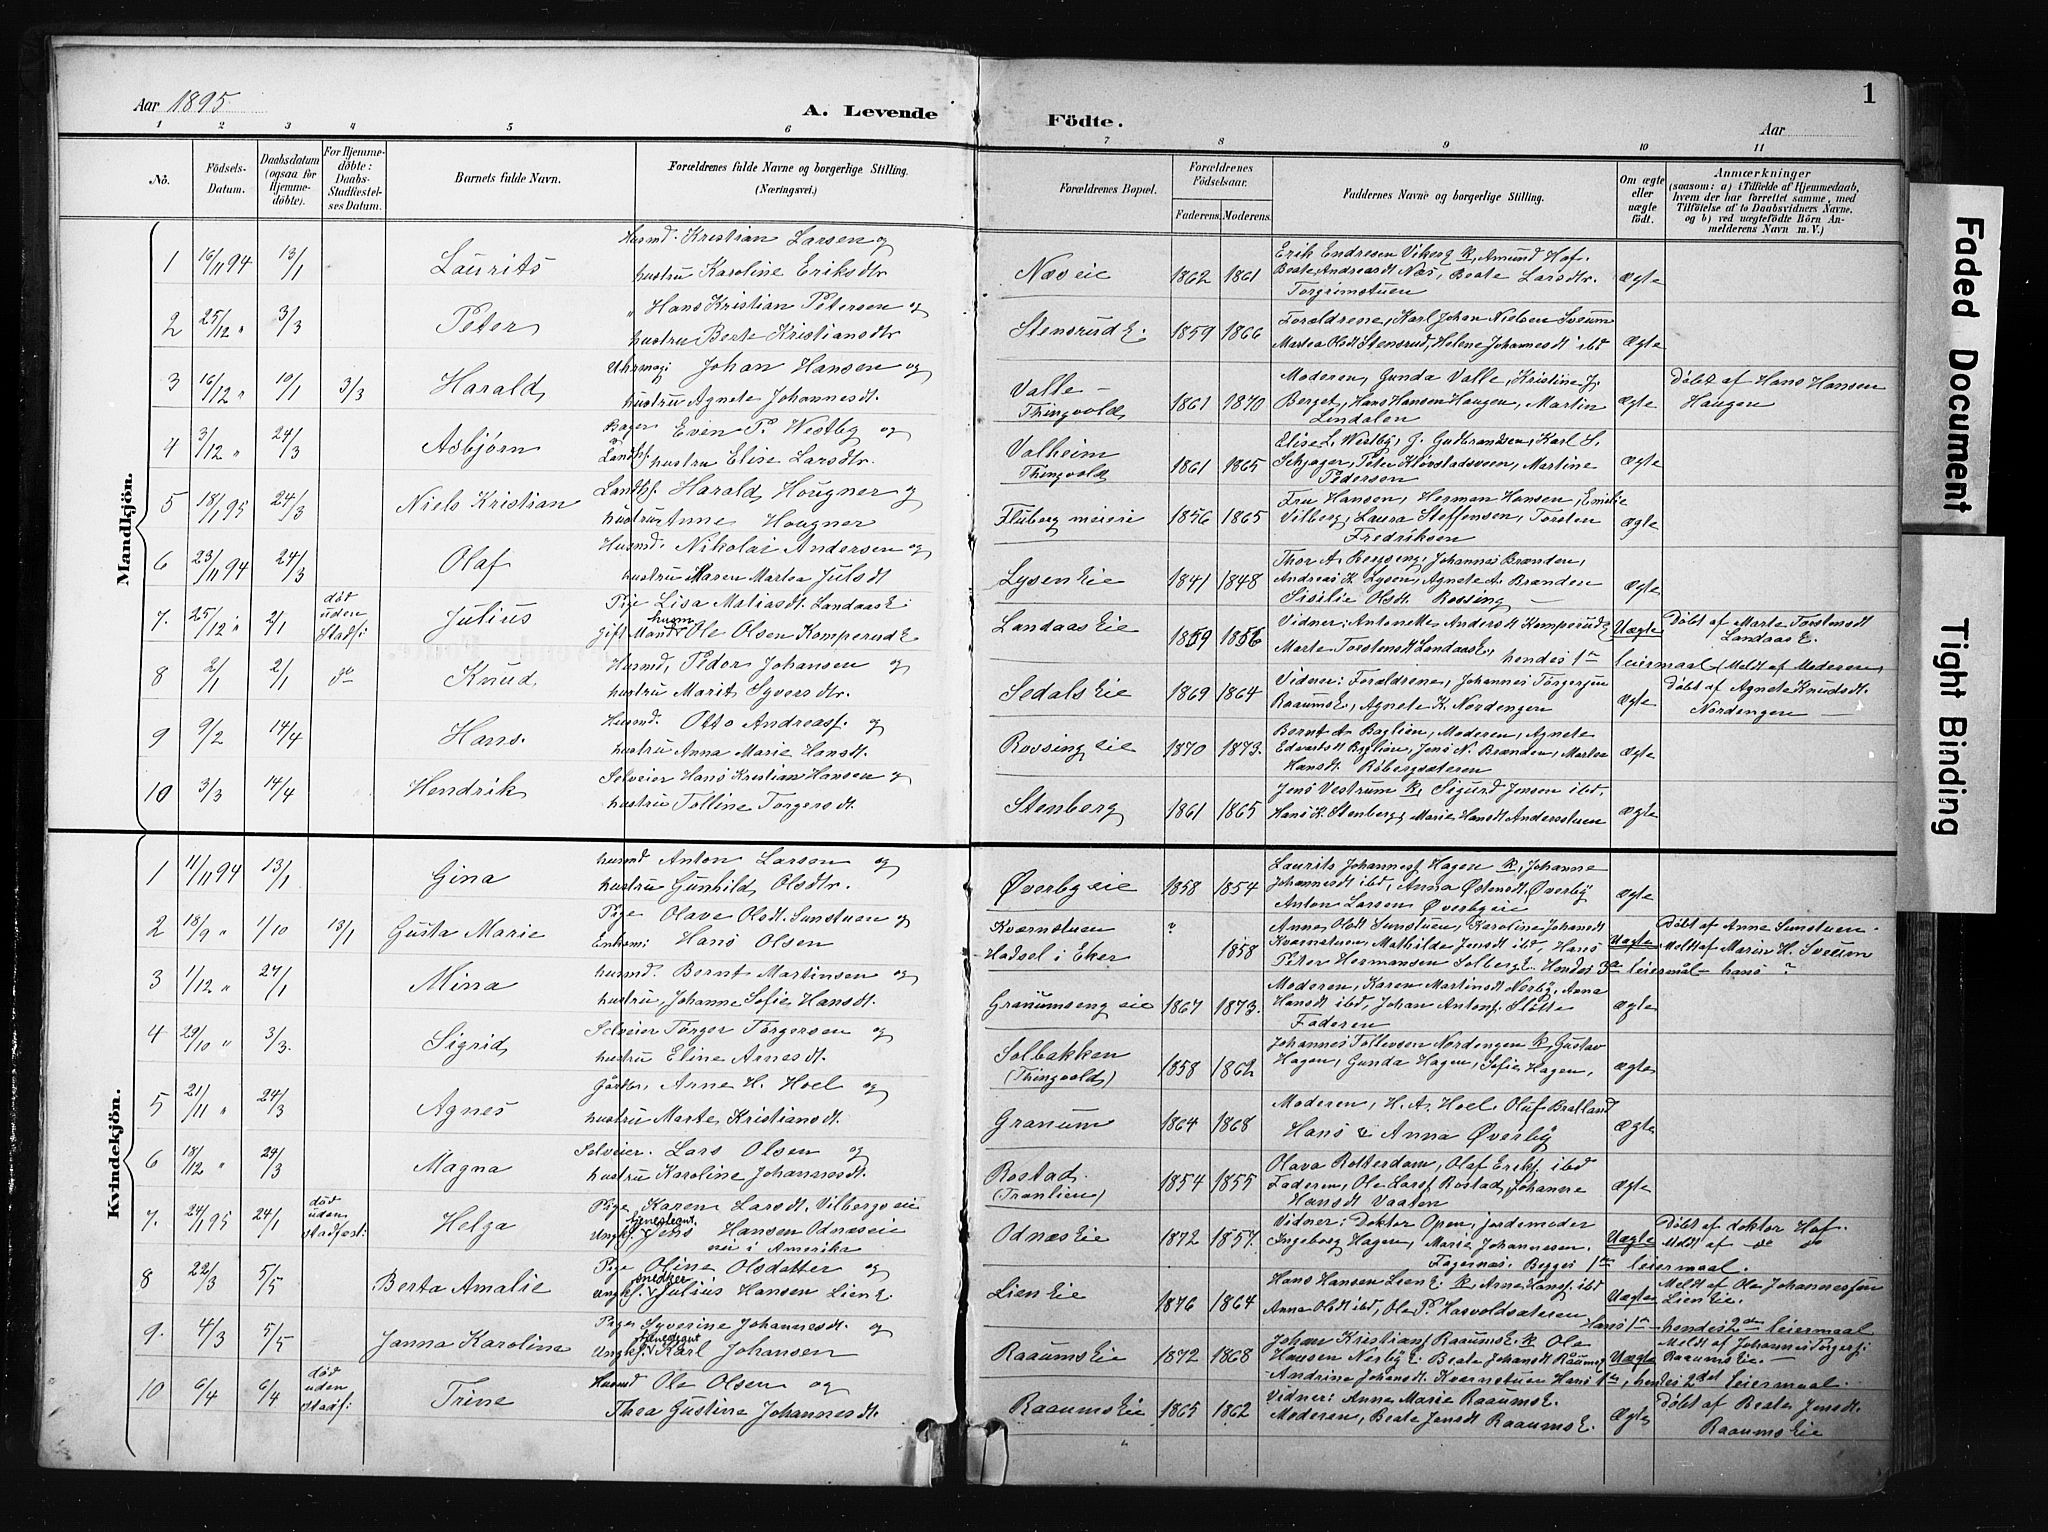 Aar 1895. A. Levende
1 2 3 4 5 6
No. Födsels-Datum. Daabsdatum (ogsaa for Hjemmedöbte). For Hjemmedöbte: Daabs-Stadfæstelses Datum. Barnets fulde Navn. Forældrenes fulde Navne og borgerlige Stilling. (Næringsvei.)
Mandkjön.
1 16/11 94 13/1 Laurits Husmd. Kristian Larsen og
hustru Karoline Eriksdtr
2 25/12 " 3/3 Peter " Hans Kristian Petersen og
hustru Berte Kristiansdtr
3 16/12 " 10/1 3/3 Harald Uhrmagr Johan Hansen og
hustru Agnete Johannesdt.
4 3/12 " 24/3 Asbjørn Bager Even P. Westby og
Landhf. hustru Elise Larsdtr.
5 18/1 95 24/3 Niels Kristian Landhf. Harald Hougner og
hustru Anne Hougner
6 23/11 94 24/3 Olaf Husmd. Nikolai Andersen og
hustru Maren Martea Julsdt
7. 25/12 " 2/1 død uden Stadf: Julius Pige Lisa Matiasdt. Landaas E.
Gift Mand husm Ole Olsen Komperud E
8 2/1 2/1 do Knud Husmd, Peder Johansen og
hustru Marit Syversdtr.
9 9/2 14/4 Hans. Husmd. Otto Andreasf. og
hustru Anna Marie Hansdt.
10 3/3 14/4 Hendrik Selveier Hans Kristian Hansen og
hustru Tolline Torgersdt.
Kvindekjön.
1 11/11 94 13/1 Gina husmd Anton Larsen og
hustru Gunhild Olsdtr.
2 18/9 " 1/10 13/1 Gusta Marie Pige Olave Olsdt. Sunstuen og
Enkem: Hans Olsen
3 1/12 " 27/1 Minna husmd. Bernt Martinsen og
hustru, Johanne Sofie Hansdt.
4 29/10 " 3/3. Sigrid Selveier Torger Torgersen og
hustru Eline Arnesdt.
5 21/11 " 24/3 Agnes Gårdbr. Arne H. Hoel og
hustru Marte Kristiansdt.
6 18/12 " 24/3 Magna Selveier. Lars Olsen og
hustru Karoline Johannesdt.
7. 24/1 95 24/1 død uden stadfest: Helga Pige Karen Larsdt. Vilbergseie
Ungkf. tjenestegut Jens Hansen Odnæseie
nu i Amerika
8 22/3 5/5 Berta Amalie Pige Oline Olsdatter og
ungkf. snedker Julius Hansen Lien E.
9. 4/3 5/5 Janna Karoline Pige Syverine Johannesdt. og
Ungkf. tjenestegut Karl Johansen
10 6/4 6/4 død uden stadf: Trine Husmd Ole Olsen og
Thea Gustine Johannesdt.
1
Födte. Aar
7 8 9 10 11
Forældrenes Bopæl. Forældrenes Födselsaar. Faderens. Moderens. Faddernes Navne og borgerlige Stilling. Om ægte eller uægte födt. Anmærkninger (saasom: a) i Tilfælde af Hjemmedaab, hvem der har forrettet samme, med Tilföielse af to Daabsvidners Navne, og b) ved uægtefödte Börn Anmelderens Navn m. V.)
Næs eie 1862 1861 Erik Endresen Viker E K, Amund Hof.
Beate Andreasdt Næs, Beate Larsdtr.
Torgrimstuen Ægte
Stensrud E. 1859 1866 Forældrene, Karl Johan Nielsen Sveum
Martea Olsdt Stensrud, Helene Johannesdt ibd Ægte
Valle - Thingvold 1861 1870 Moderen, Gunda Valle, Kristine J.
Berget, Hans Hansen Haugen, Martin
Lindalen Ægte Døbt af Hans Hansen
Haugen
Valheim Thingvold 1861 1865 Elise L. Westby, J. Gudbrandsen, Karl S.
Schjager, Peter Klovstadsveen, Martine
Pederson Ægte
Fluberg meieri 1856 1865 Fru Hansen, Herman Hansen, Emilie
Vilberg, Laura Steffensen, Torsten
Fredriksen Ægte
Lysen Eie 1841 1848 Thor A. Bergseng, Johannes Brænden,
Andreas K. Lysen, Agnete A. Brænden
Sisilie Olsdt. Rossing Ægte
Landaas Eie 1859 1856 Vidner: Antonette Andersdt Komperud E
Marte Torstensdt Landaas E, hendes 1ste leiermaal (Meldt af Moderen) Uægte Døbt af Marte Torstensdt
Landaas E.
Sedals Eie 1869 1864 Vidner: Forældrene, Johannes Torgersen
Raaums E, Agnete K. Nordengen Ægte Døbt af Agnete Knudsdt.
Nordengen
Rossing eie 1870 1873. Bernt A. Baglien, Moderen, Agnete
Edvartsdt Baglien, Jens N. Brænden, Martea
Hansdt. Robergsæteren Ægte
Stenberg 1861 1865 Jens Vestrum K, Sigurd Jensen ibd,
Hans K. Stenberg, Marie Hansdt Andersstuen Ægte
Øverby eie 1858 1854 Laurits Johannesf Hagen K, Johanne
Johannesdt ibd, Anna Østensdt, Øverby
Anton Larsen Øverby eie Ægte
Kværnstuen ? Anne Olsdt Sunstuen, Karoline Johansdt
Hadsel i Eker 1858 Kværnstuen, Mathilde Jensdt ibd, Hans
Peter Hermansen Solberg E. Hendes 3die leiermål - hans ? Uægte Døbt af Anne Sunstuen.
Meldt af Maren H. Sveum
Granumseng eie 1867 1873. Moderen, Karen Martinsdt Nerby, Anna
Hansdt ibd, Johan Antonf. Slotte
Faderen Ægte
Solbakken (Thingvold) 1858 1862 Johannes Tollevsen Nordengen K, Gustav
Hagen, Gunda Hagen, Sofie Hagen, Ægte
Granum 1864 1868 Moderen, H. A. Hoel, Oluf Bratland
Hans & Anna Øverby Ægte
Rostad (Tranlien) 1854 1855 Olava Rotterdam, Olaf Erikf ibd
Faderen, Ole Larsf Rostad, Johanne
Hansdt Vaaten Ægte
Odnæs Eie 1872 1857. Vidner: Doktor Open, jordemoder
Ingeborg Hagen, Marie Johannesen.
Fagernæs. Berges 1ste leiermaal. Uægte Døbt af doktor Hof.
Meldt af do do
Lien Eie 1876 1864 Hans Hansen Lien E. K, Arne Hansf. ibd
Anne Olsdt ibd, Ole P. Hasvoldsæteren Uægte Meldt af Ole Johannessen
Lien Eie.
Hans 1ste - hendes 2det leiermaal
Raaums Eie 1872 1868 Johan Kristiansf Raaums E. K Ole
Hansen Nerby E. Beate Johansdt Raums E Uægte Meldt af Johannes Torgersf.
Raaums Eie.
Andrine Johansdt. Kvernstuen Hans 1ste, hendes 2det leiermaal.
Raaums Eie 1865 1862 Vidner: Anne Marie Raaums E.
Moderen, Beate Jensdt Raaums E. Ægte Døbt af Beate Jensdt.
Raaums Eie
Faded Document
Tight Binding